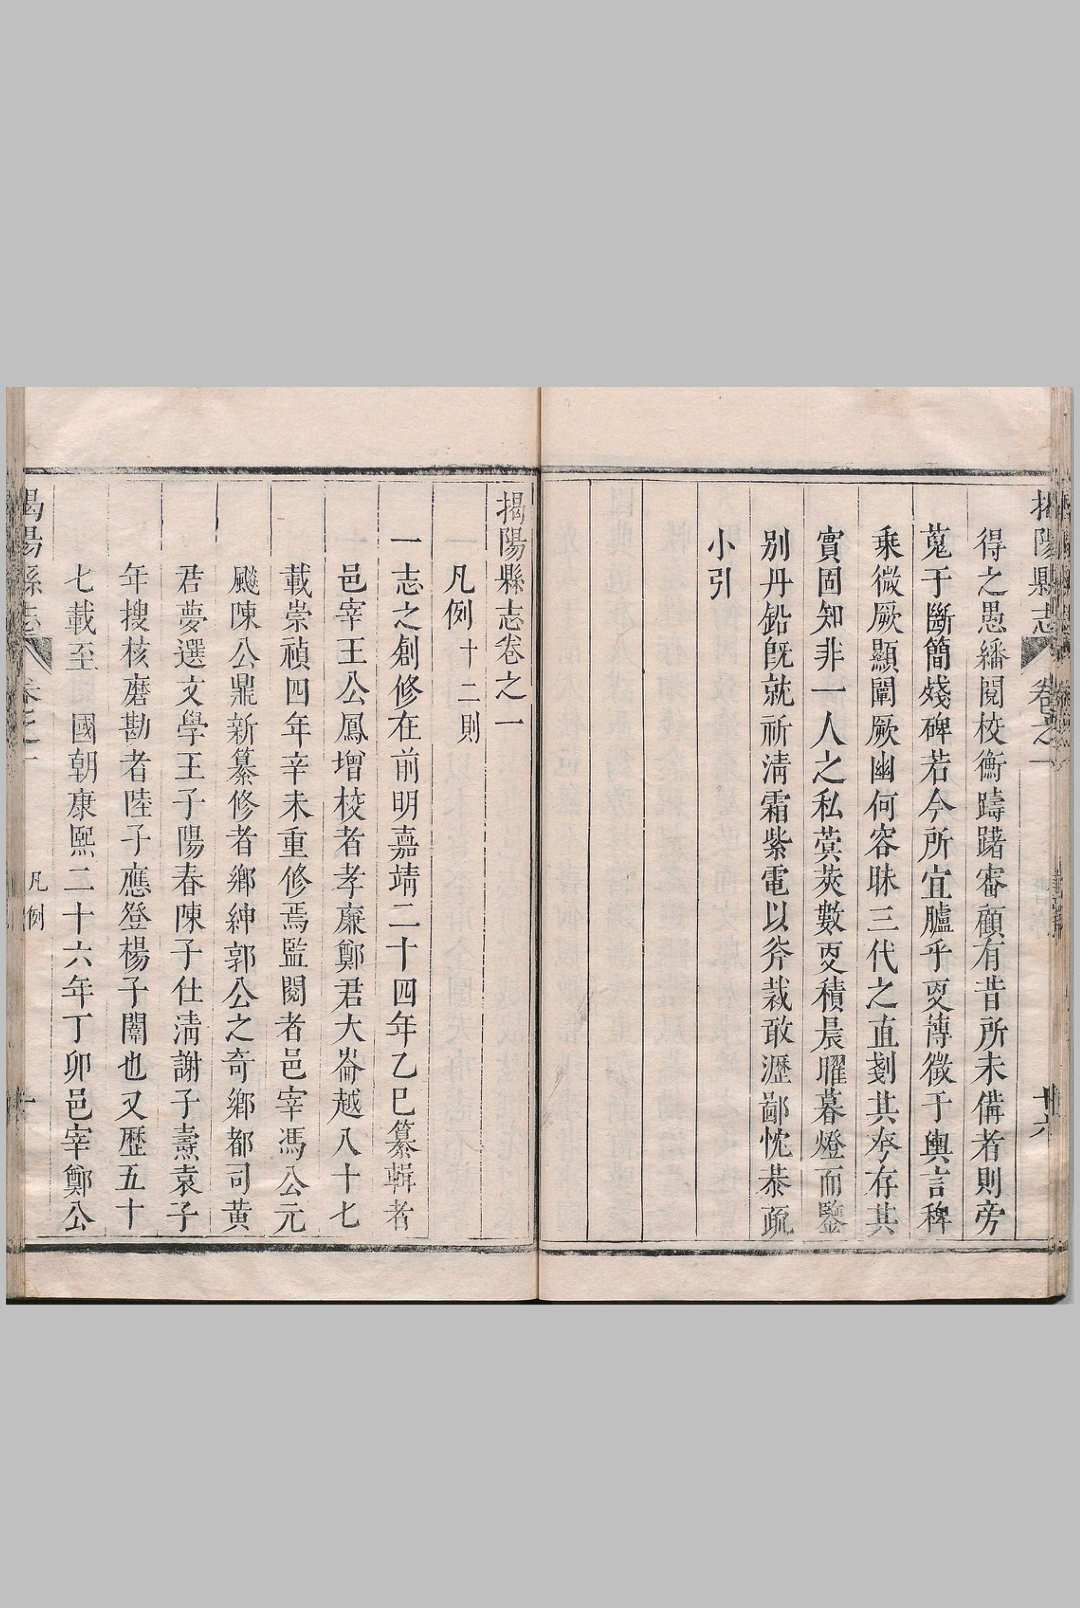 揭陽縣志 卷之一 十六
得之愚繙閱校衡躊躇審顧有昔所未備者則旁
蒐于斷簡殘碑若今所宜臚乎更博徵于輿言稗
乘微厥顯闡厥幽何容昧三代之直剗其夸存其
實固知非一人之私蓂莢數更積晨曜暮燈而鑒
別丹鉛旣就祈淸霜紫電以斧裁敢瀝鄙忱恭疏
小引
揭陽縣志卷之一
凡例十二則
一志之創修在前明嘉靖二十四年乙巳纂輯者
邑宰王公鳳增校者孝廉鄭君大崙越八十七
載崇禎四年辛未重修焉監閱者邑宰馮公元
颷陳公鼎新纂修者鄉紳郭公之奇鄉都司黃
君夢選文學王子陽春陳子仕淸謝子燾袁子
年搜核磨勘者陸子應登楊子闈也又歷五十
七載至 國朝康熙二十六年丁卯邑宰鄭公
揭陽縣志 卷之一 凡例 一